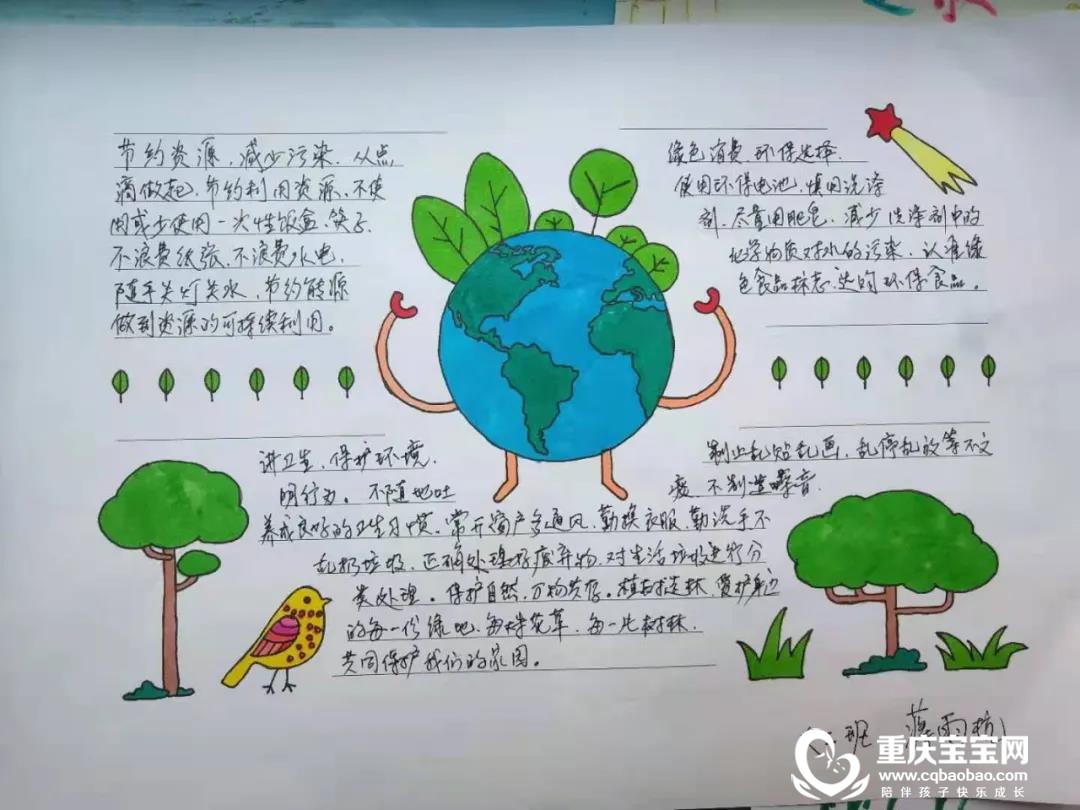 节约资源，减少污染，从点
滴做起，节约利用资源，不使
用或少使用一次性饭盒、筷子，
不浪费纸张，不浪费水电，
随手关灯关水，节约能源
做到资源的可持续利用。
绿色消费，环保选择，
使用环保电池，慎用洗涤
剂，尽量用肥皂，减少洗涤剂中的
化学物质对水的污染，认准绿
色食品标志，达的环保食品。
讲卫生，保护环境，
制止乱贴乱画，乱停乱放等不文
明行为。不随地吐
痰，不制造噪音
养成良好的卫生习惯，常开窗户多通风，勤换衣服，勤洗手不
乱扔垃圾，正确处理好废弃物，对生活垃圾进行分
类处理。保护自然，万物共存。植树造林，爱护身边
的每一份绿地，每棵花草，每一片树林，
共同保护我们的家园。
班
雨
重庆宝宝网
www.cqbaobao.com
陪伴孩子快乐成长